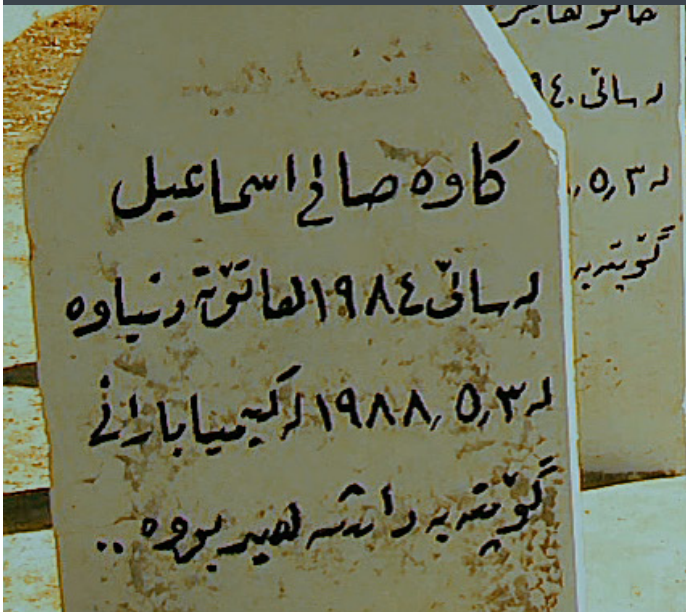 كاوه صالح اسماعيل
لە ساڵی ١٩٨٤ هاتۆتە دنیاوە
لە ٣٫٥٫١٩٨٨ لە کیمیابارانی
گۆپتەپە دا شەهید بووە ..
لە ساڵی
لە ٣٫٥٫
گۆپتەپە